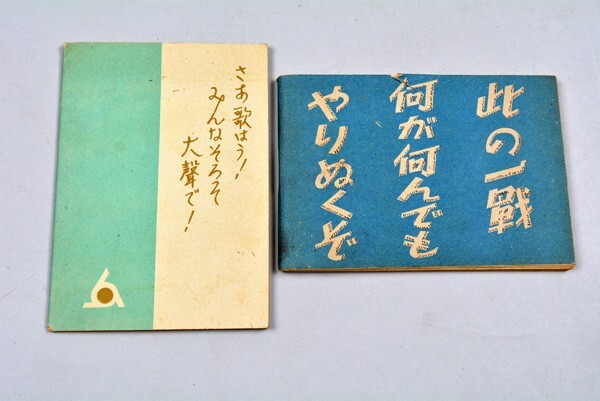 さあ歌はう!
みんなそろつて
大聲で!
此の一戰
何が何んでも
やりぬくぞ